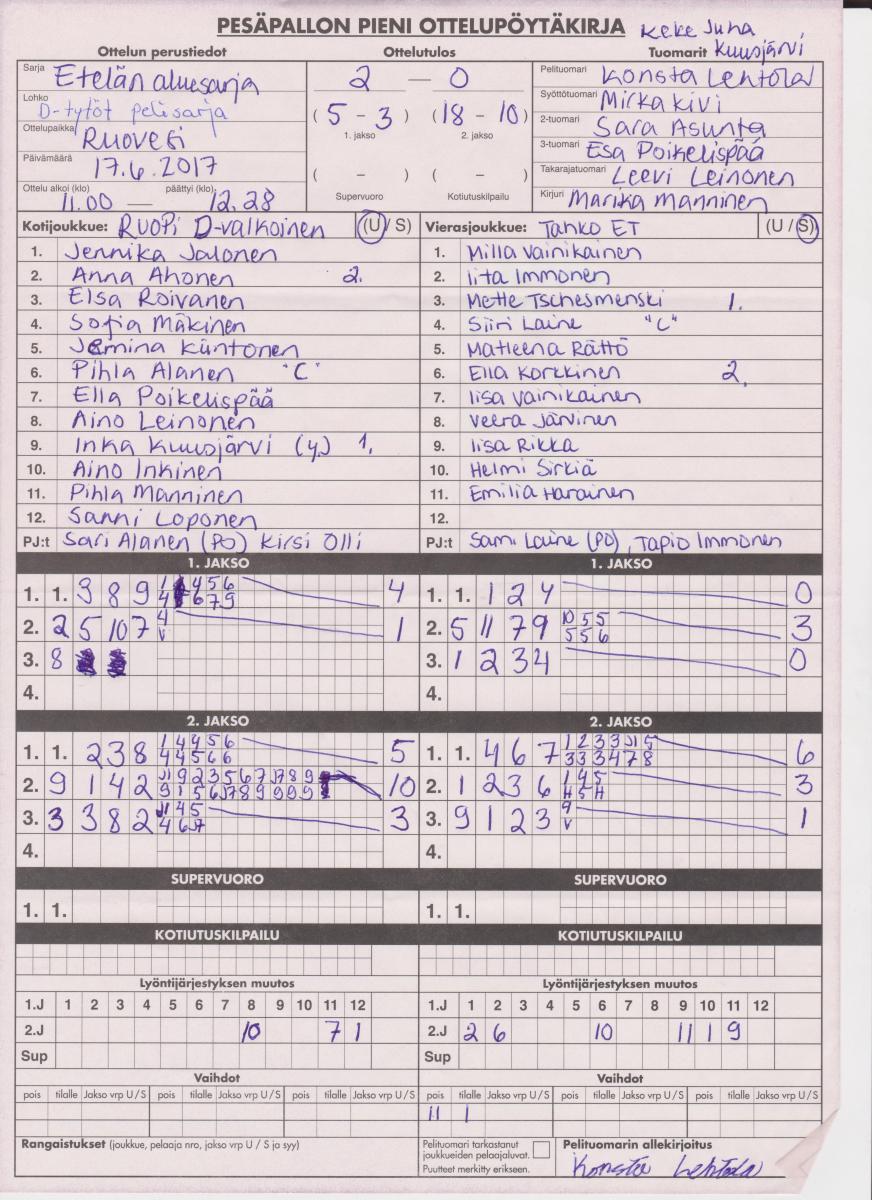 PESÄPALLON PIENI OTTELUPÖYTÄKIRJA Keke Juha
Kuusjärvi
Ottelun perustiedot Ottelutulos Tuomarit
Sarja Etelän aluesarja
Lohko D-tytöt pelisarja
Ottelupaikka Ruovesi
Päivämäärä 17.6.2017
Ottelu alkoi (klo) 11.00 — päättyi (klo) 12.28
2 — 0
( 5 - 3 ) (18 - 10)
1. jakso 2. jakso
( - ) ( - )
Supervuoro Kotiutuskilpailu
Pelituomari Konsta Lehtola
Syöttötuomari Mirka Kivi
2-tuomari Sara Asunta
3-tuomari Esa Poikelispää
Takarajatuomari Leevi Leinonen
Kirjuri Marika Manninen
Kotijoukkue: RUOPi D-valkoinen (U / S)
1. Jennika Jalonen
2. Anna Ahonen 2.
3. Elsa Roivanen
4. Sofia Mäkinen
5. Jemina Kuntonen
6. Pihla Alanen "C"
7. Ella Poikelispää
8. Aino Leinonen
9. Inka Kuusjärvi (y.) 1.
10. Aino Inkinen
11. Pihla Manninen
12. Sanni Loponen
PJ:t Sari Alanen (PO) Kirsi Olli
Vierasjoukkue: Tahko ET (U / S)
1. Milla Vainikainen
2. Iita Immonen
3. Mette Tschesmenski 1.
4. Siiri Laine "C"
5. Matleena Rättö
6. Ella Korkkinen 2.
7. Iisa Vainikainen
8. Veera Järvinen
9. Iisa Rikka
10. Helmi Sirkiä
11. Emilia Harainen
12.
PJ:t Sami Laine (PO), Tapio Immonen
1. JAKSO
1. 1. 3 8 9 4
2. 2 5 10 7 4 V 1
3. 8
4.
1. JAKSO
1. 1. 1 2 4 0
2. 5 11 7 9 10 5 5 5 5 6 3
3. 1 2 3 4 0
4.
2. JAKSO
1. 1. 2 3 8 1 4 4 5 6 4 4 5 6 6 5
2. 9 1 4 2 10
3. 3 3 8 2 3
4.
2. JAKSO
1. 1. 4 6 7 6
2. 1 2 3 6 3
3. 9 1 2 3 9 V 1
4.
SUPERVUORO SUPERVUORO
1. 1. 1. 1.
KOTIUTUSKILPAILU KOTIUTUSKILPAILU
Lyöntijärjestyksen muutos Lyöntijärjestyksen muutos
1.J 1 2 3 4 5 6 7 8 9 10 11 12 1.J 1 2 3 4 5 6 7 8 9 10 11 12
2.J 10 7 1 2.J 2 6 10 11 1 9
Sup Sup
Vaihdot Vaihdot
pois tilalle Jakso vrp U / S pois tilalle Jakso vrp U / S pois tilalle Jakso vrp U / S pois tilalle Jakso vrp U / S pois tilalle Jakso vrp U / S pois tilalle Jakso vrp U / S
11 1
Rangaistukset (joukkue, pelaaja nro, jakso vrp U / S ja syy)
Pelituomari tarkastanut
joukkueiden pelaajaluvat.
Puutteet merkitty erikseen.
Pelituomarin allekirjoitus
Konsta Lehtola